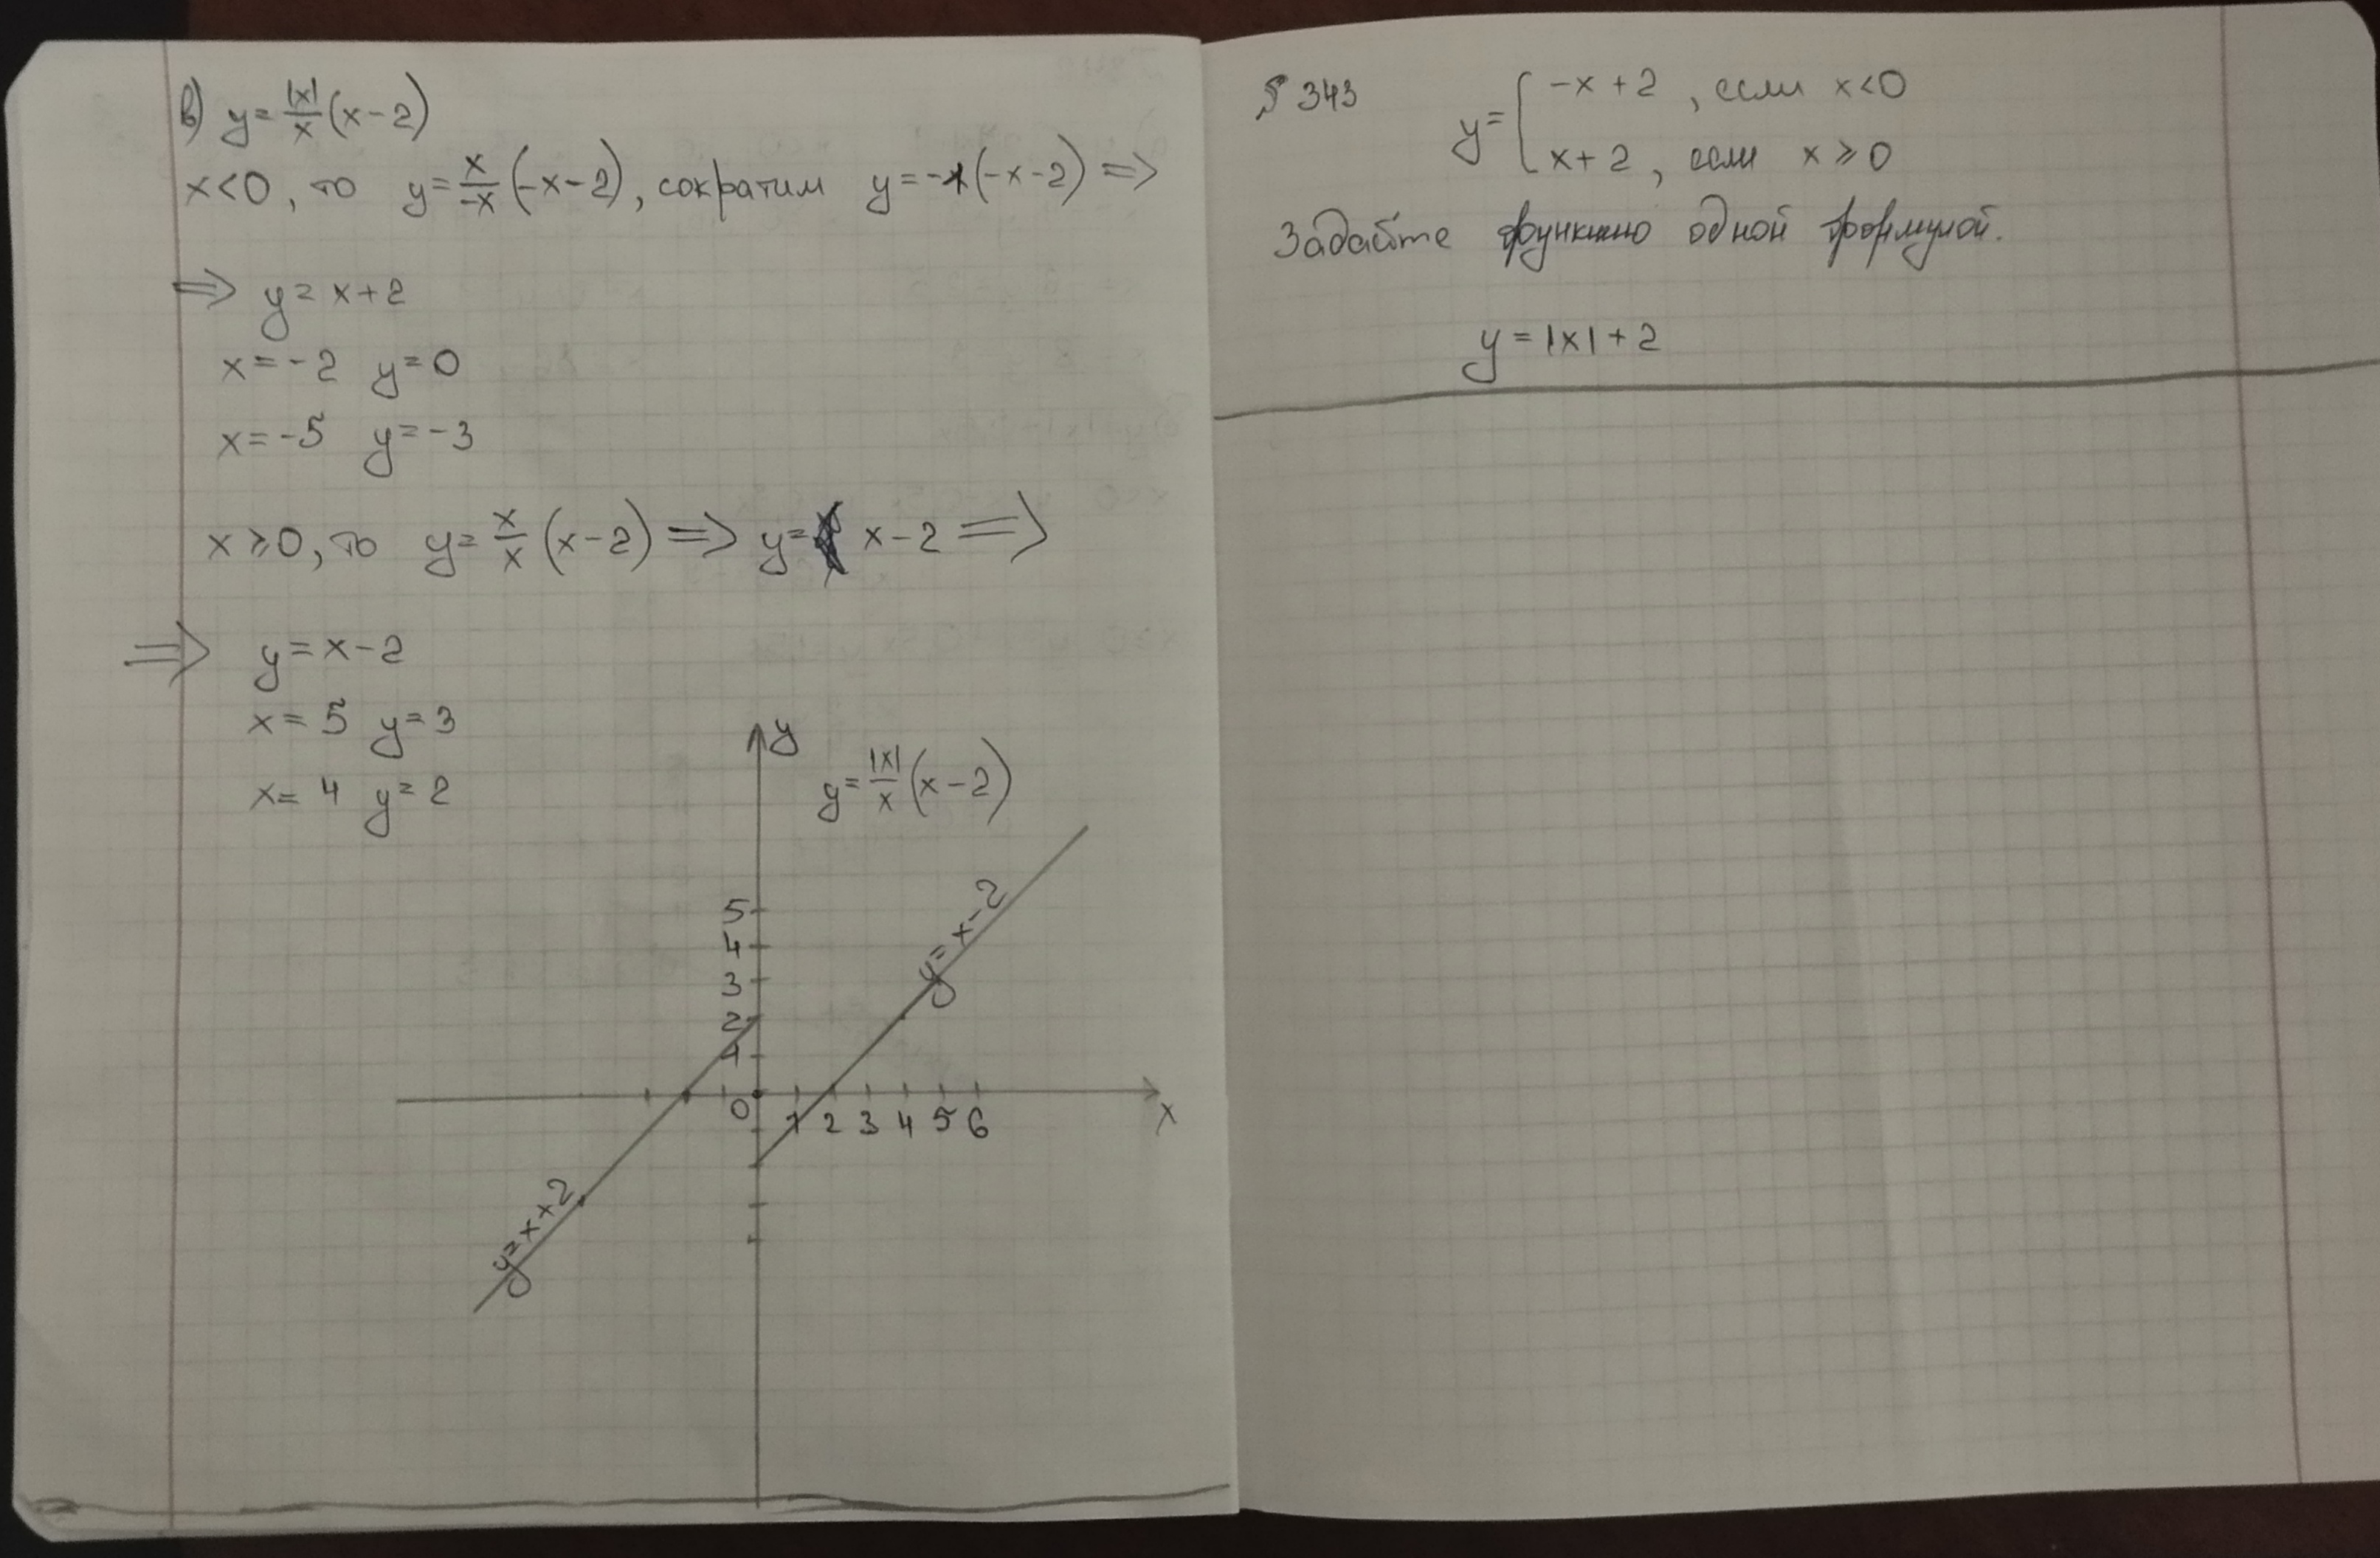 в) y = |x|/x (x-2)
x<0, то y = x/-x (-x-2), сократим y = -1(-x-2) =>
=> y = x+2
x = -2 y = 0
x = -5 y = -3
x ≥ 0, то y = x/x (x-2) => y = x-2 =>
=> y = x-2
x = 5 y = 3
x = 4 y = 2
y
y = |x|/x (x-2)
y = x-2
5
4
3
2
1
0 1 2 3 4 5 6
x
y = x+2
§ 343
y = { -x + 2, если x<0
x+2, если x ≥ 0
Задайте функцию одной формулой.
y = |x| + 2